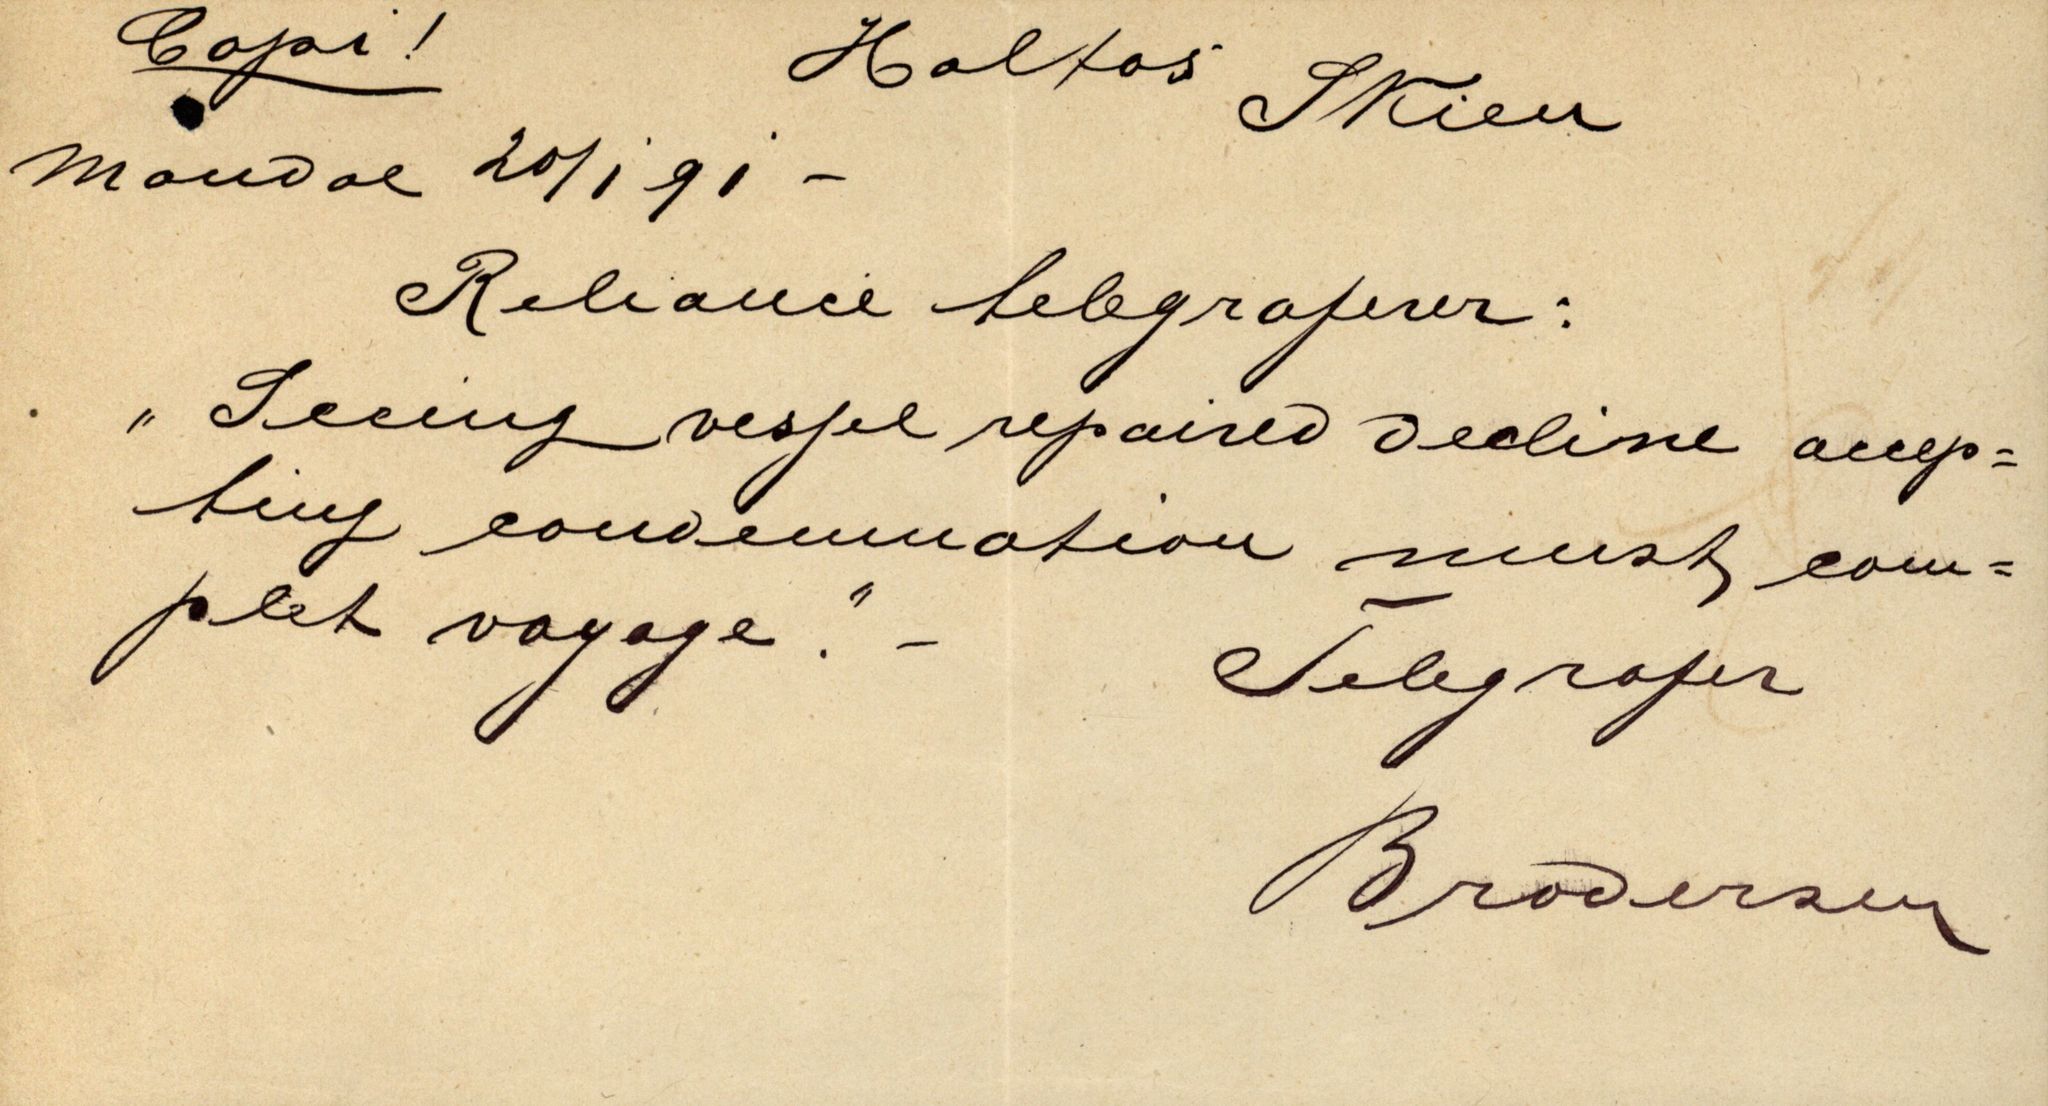 Copi!
Holtas Skien
Mandal 20/1 91 -
Reliance telegraferer:
"Seeing vessel repaired decline accep=
ting condemnation must com=
plet voyage." -
Telegrafer
Brodersen